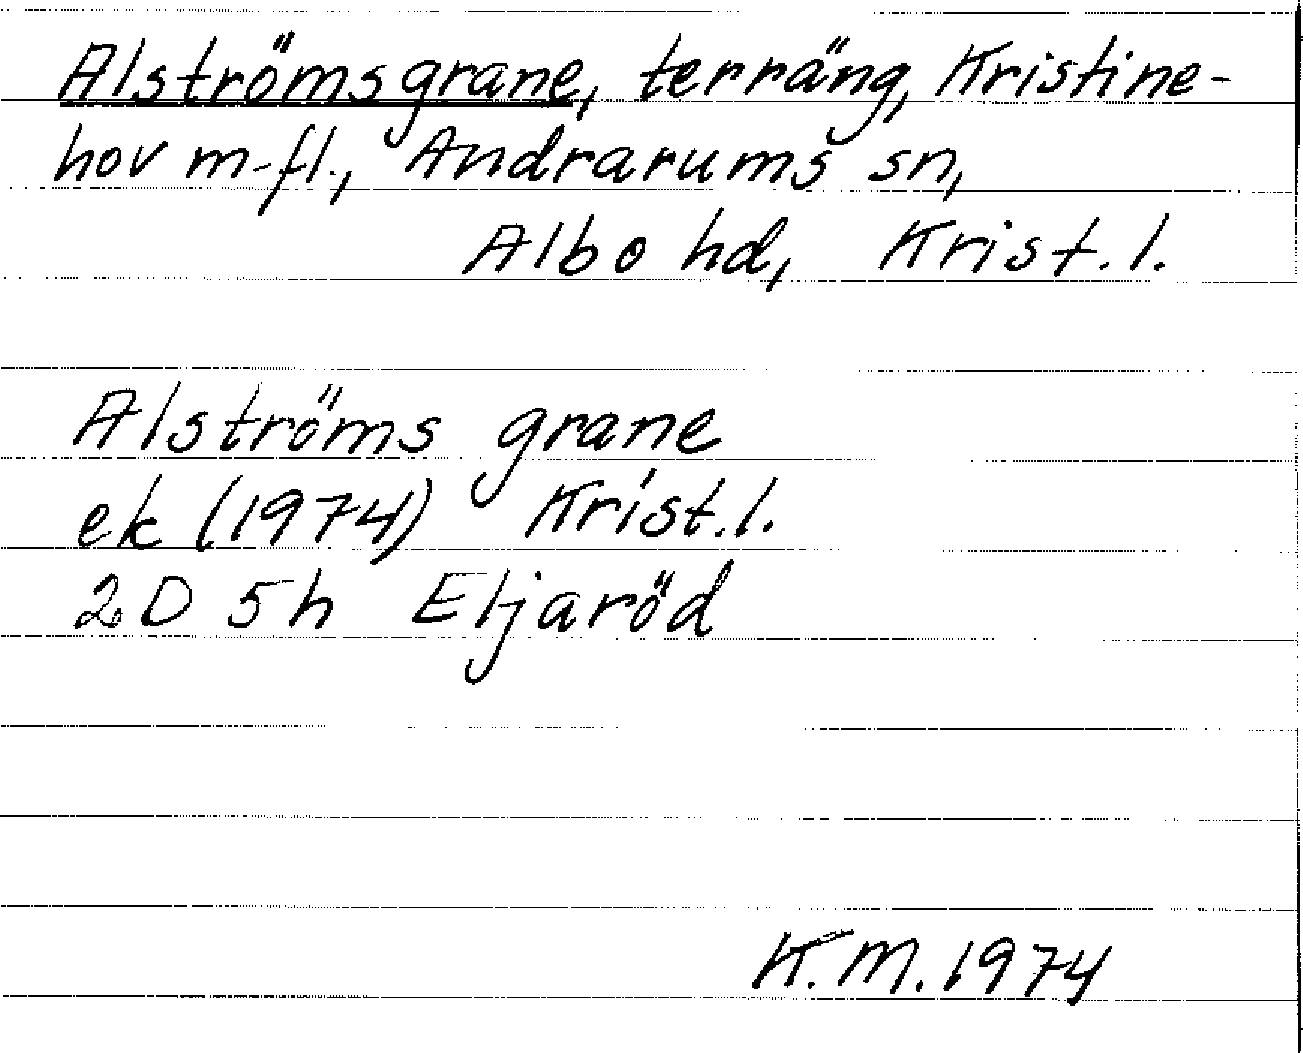 Alströmsgrane, terräng, Kristine-
hov m.fl., Andrarums sn,
Albo hd, Krist. l.
Alströms grane
ek (1974) Krist. l.
2D 5h Eljaröd
K.M. 1974